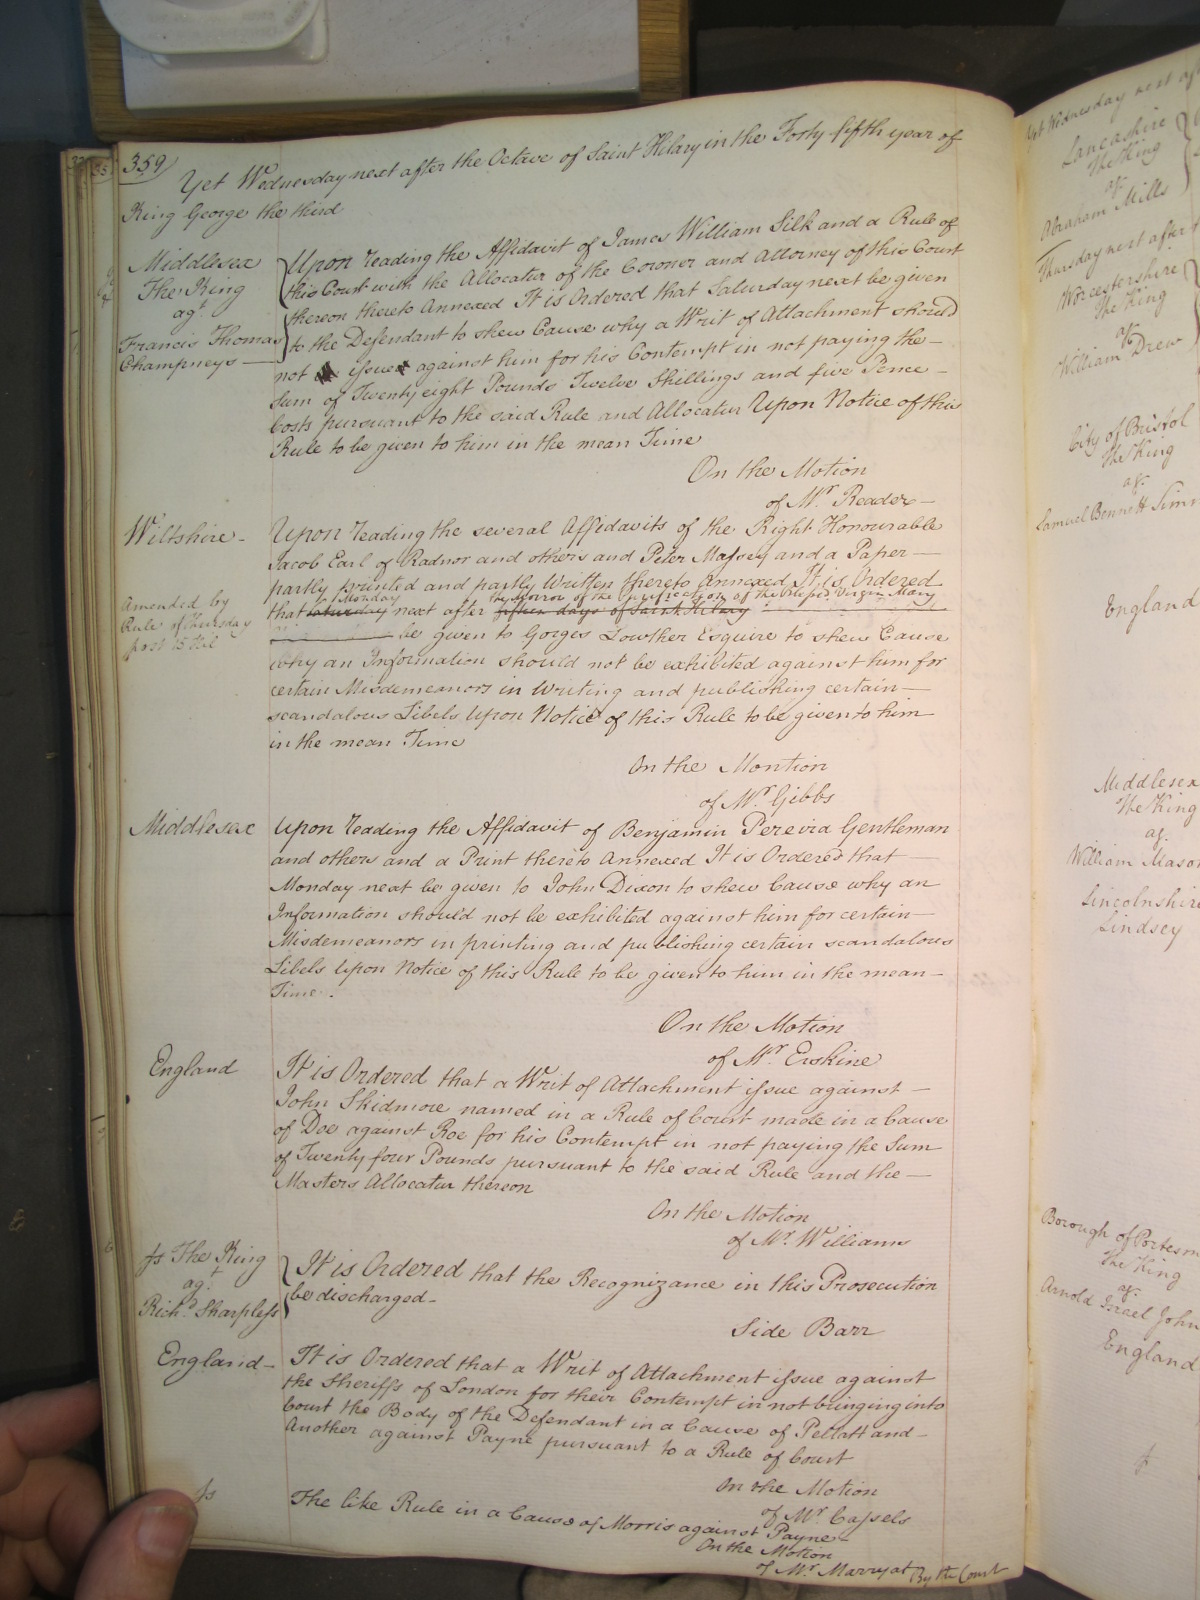 359
Yet Wednesday next after the Octave of Saint Hilary in the Forty fifth year of
King George the third
Middlesex
The King
agt
Francis Thomas
Champneys
Upon reading the Affidavit of James William Silk and a Rule of
this Court with the Allocatur of the Coroner and Attorney of this Court
thereon thereto Annexed It is Ordered that Saturday next be given
to the Defendant to shew Cause why a Writ of Attachment should
not issue against him for his Contempt in not paying the
Sum of Twenty eight Pounds Twelve Shillings and five Pence
Costs pursuant to the said Rule and Allocatur Upon Notice of this
Rule to be given to him in the mean Time
On the Motion
of Mr Reader
Wiltshire
Amended by
Rule of Thursday
post 15th
Upon reading the several Affidavits of the Right Honourable
Jacob Earl of Radnor and others and Peter Massey and a Paper
partly printed and partly Written thereto Annexed It is Ordered
Monday the morrow of the purification of the Blessed Virgin Mary
that Saturday next after fifteen days of Saint Hilary
be given to Gorges Lowther Esquire to shew Cause
why an Information should not be exhibited against him for
certain Misdemeanors in Writing and publishing certain
scandalous Libels Upon Notice of this Rule to be given to him
in the mean Time
On the Montion
of Mr Gibbs
Middlesex
Upon reading the Affidavit of Benjamin Pereira Gentleman
and others and a Print thereto Annexed It is Ordered that
Monday next be given to John Dixon to shew Cause why an
Information should not be exhibited against him for certain
Misdemeanors in printing and publishing certain scandalous
Libels Upon Notice of this Rule to be given to him in the mean
Time
On the Motion
of Mr Erskine
England
It is Ordered that a Writ of Attachment issue against
John Skidmore named in a Rule of Court made in a Cause
of Doe against Roe for his Contempt in not paying the Sum
of Twenty four Pounds pursuant to the said Rule and the
Masters Allocatur thereon
On the Motion
of Mr Williams
fs The King
agt
Richd Sharpless
It is Ordered that the Recognizance in this Prosecution
be discharged
Side Barr
England
It is Ordered that a Writ of Attachment issue against
the Sheriffs of London for their Contempt in not bringing into
Court the Body of the Defendant in a Cause of Pellatt and
Another against Payne pursuant to a Rule of Court
On the Motion
of Mr Cassels
fs
The like Rule in a Cause of Morris against Payne
On the Motion
of Mr Marryat By the Court
Yet Wednesday next
Lancashire
The King
agt
Abraham Mills
Thursday next after
Worcestershire
The King
agt
William Drew
City of Bristol
The King
agt
Samuel Bennett
England
Middlesex
The King
agt
William Mason
Lincolnshire
Lindsey
Borough of
The King
agt
Arnold Israel John
England
fs